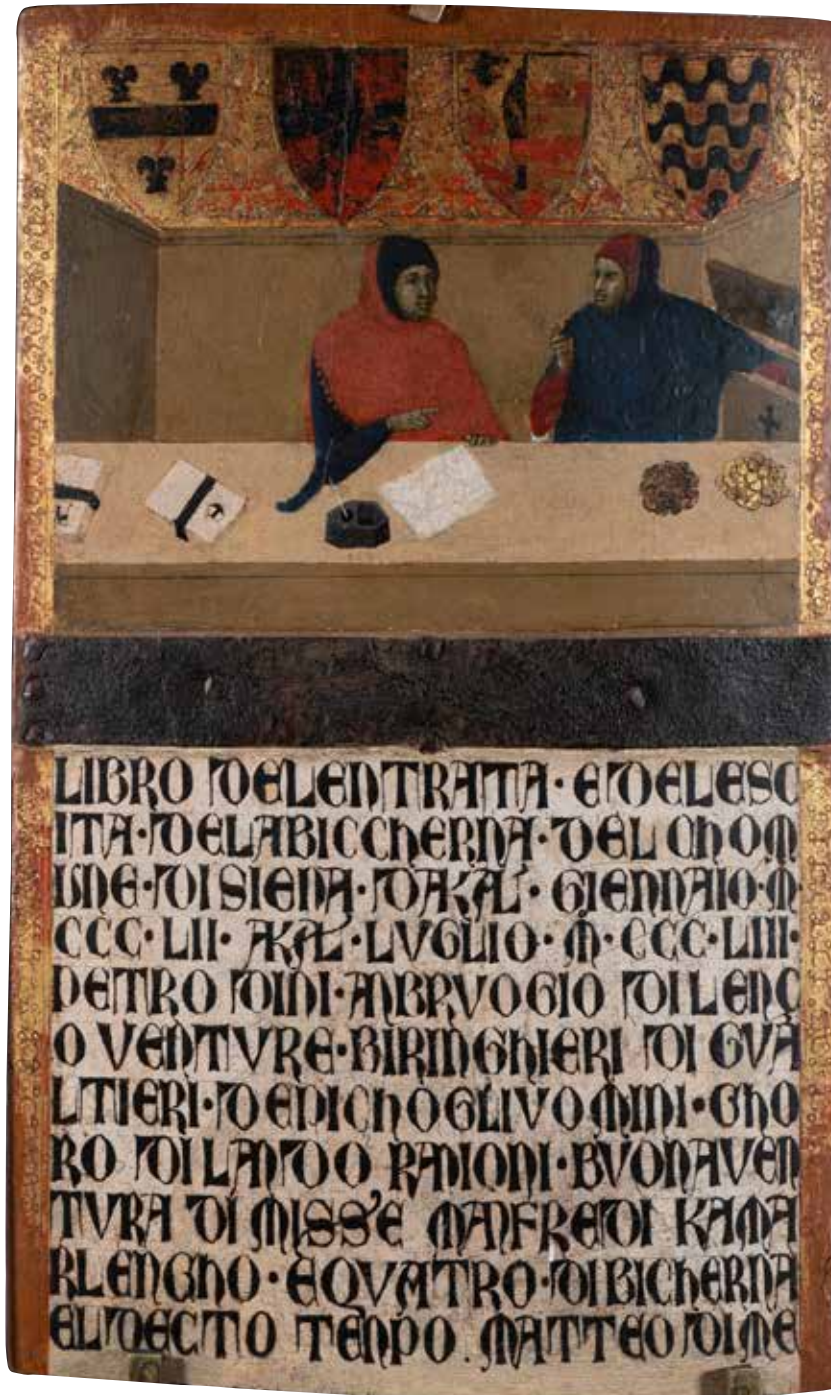 LIBRO DELENTRATA · E DELESC
ITA · DELABICCHERNA · DEL CHOM
UNE · DI SIENA · DAKAL · GIENNAIO · M ·
CCC · LII · AKAL · LVGLIO · M · CCC · LIII ·
PETRO DINI · ANBRVOGIO DI LENÇ
O VENTVRE · BIRINGHIERI DI GVA
LTIERI · DE PICHOGLIVOMINI · GHO
RO DI LANDO RANIONI · BVONAVEN
TVRA DI MISS'E MANFREDI KAMA
RLENGHO · EQVATRO · DI BICHERNA
EL DECTO TENPO . MATTEO DI ME